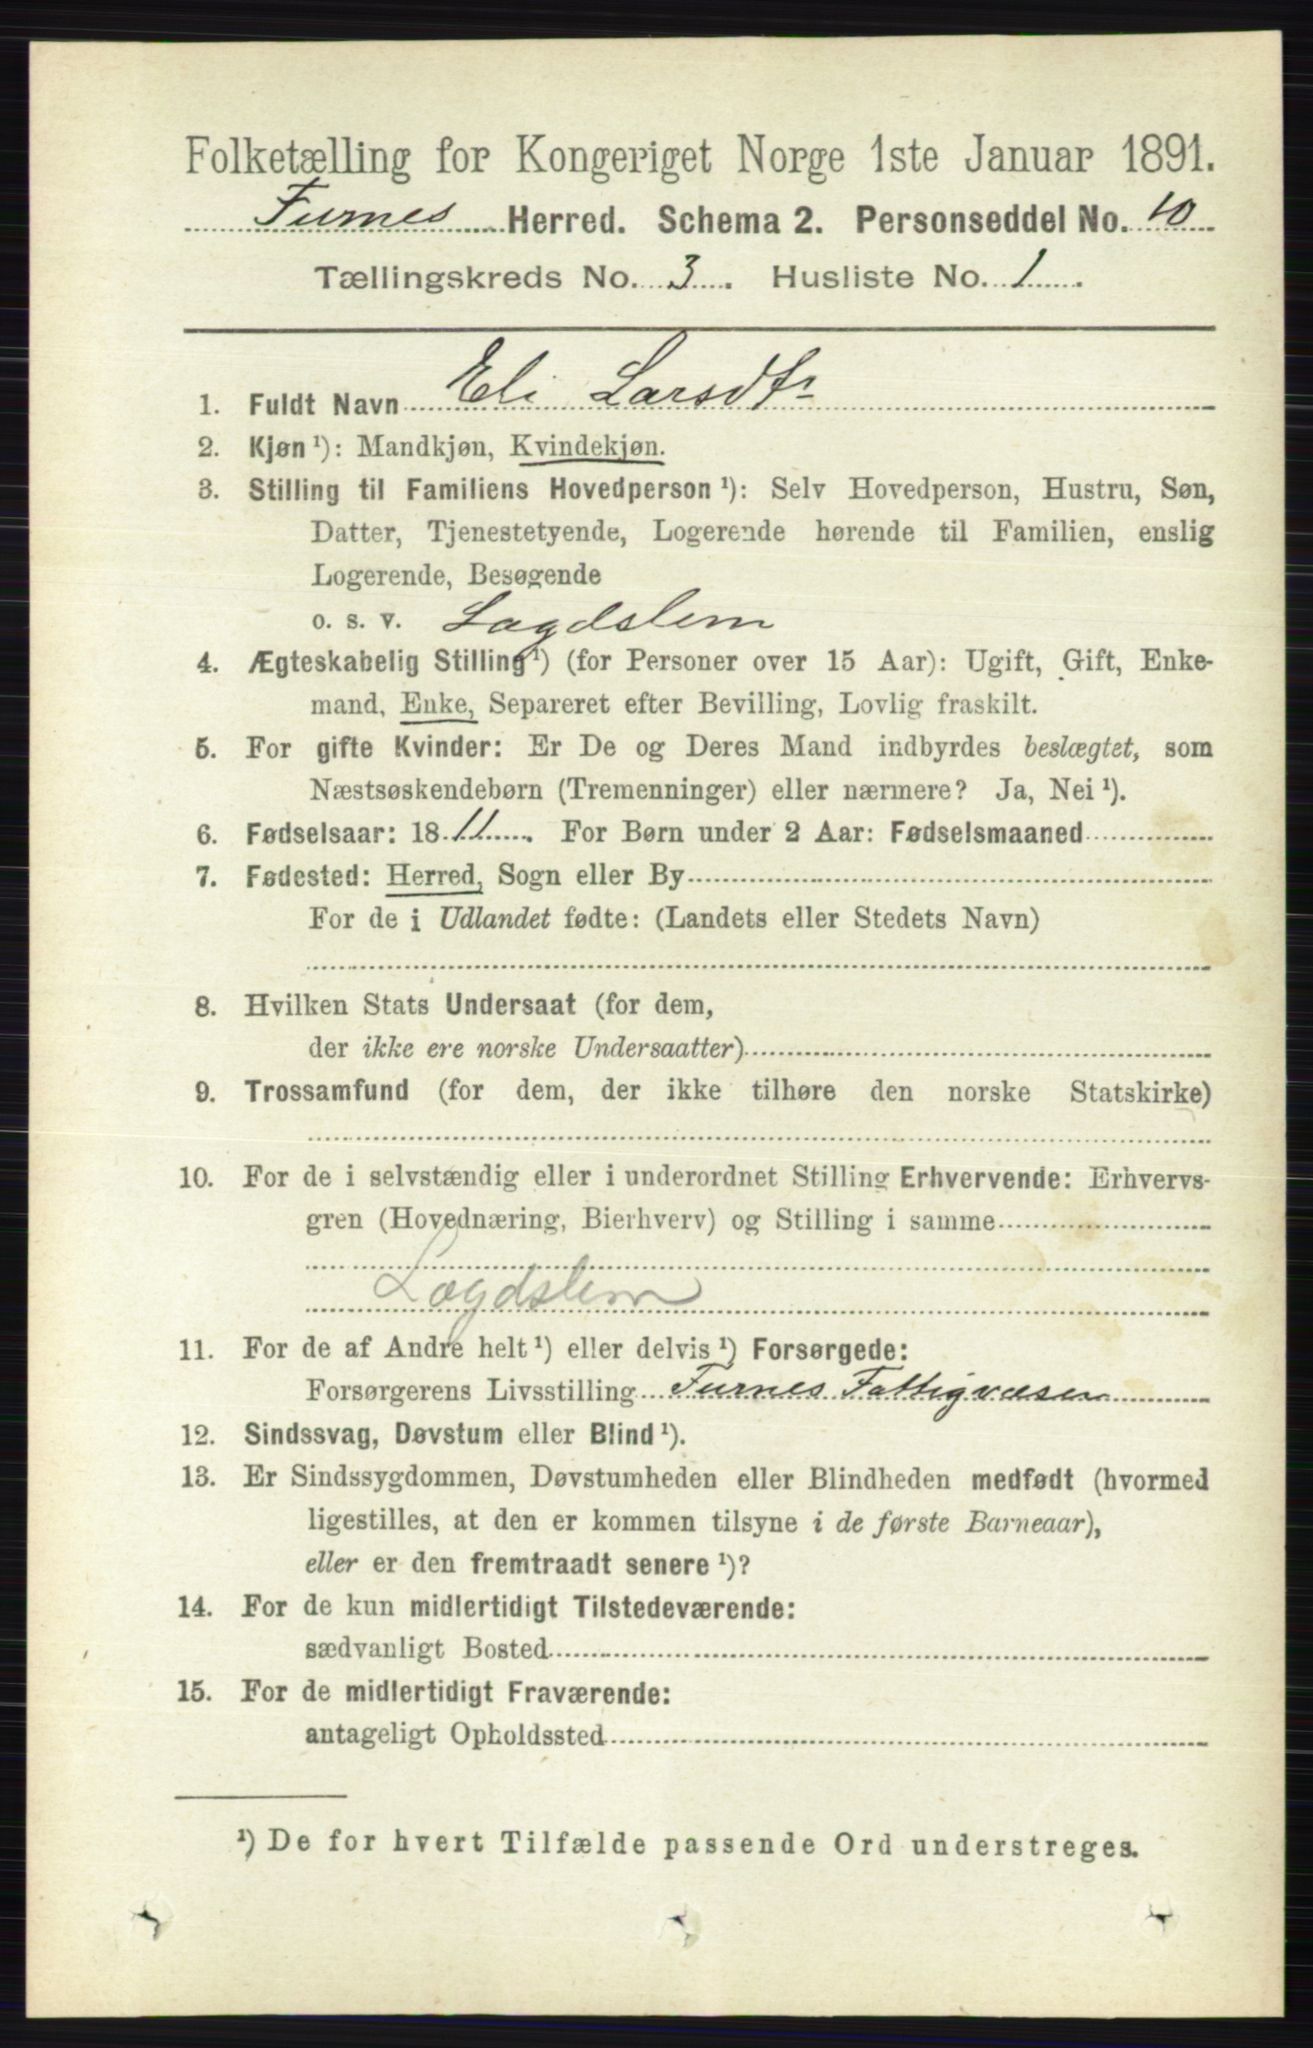 Folketælling for Kongeriget Norge 1ste Januar 1891.
Furnes Herred. Schema 2. Personseddel No. 10
Tællingskreds No. 3. Husliste No. 1.
1. Fuldt Navn Eli Larsdtr
2. Kjøn ¹): Mandkjøn, Kvindekjøn.
3. Stilling til Familiens Hovedperson ¹): Selv Hovedperson, Hustru, Søn,
Datter, Tjenestetyende, Logerende hørende til Familien, enslig
Logerende, Besøgende
o. s. v. Lægdslem
4. Ægteskabelig Stilling ¹) (for Personer over 15 Aar): Ugift, Gift, Enke-
mand, Enke, Separeret efter Bevilling, Lovlig fraskilt.
5. For gifte Kvinder: Er De og Deres Mand indbyrdes beslægtet, som
Næstsøskendebørn (Tremenninger) eller nærmere? Ja, Nei ¹).
6. Fødselsaar: 1811. For Børn under 2 Aar: Fødselsmaaned
7. Fødested: Herred, Sogn eller By
For de i Udlandet fødte: (Landets eller Stedets Navn)
8. Hvilken Stats Undersaat (for dem,
der ikke ere norske Undersaatter)
9. Trossamfund (for dem, der ikke tilhøre den norske Statskirke)
10. For de i selvstændig eller i underordnet Stilling Erhvervende: Erhvervs-
gren (Hovednæring, Bierhverv) og Stilling i samme
Lægdslem
11. For de af Andre helt ¹) eller delvis ¹) Forsørgede:
Forsørgerens Livsstilling Furnes Fattigvæsen
12. Sindssvag, Døvstum eller Blind ¹).
13. Er Sindssygdommen, Døvstumheden eller Blindheden medfødt (hvormed
ligestilles, at den er kommen tilsyne i de første Barneaar),
eller er den fremtraadt senere ¹)?
14. For de kun midlertidigt Tilstedeværende:
sædvanligt Bosted
15. For de midlertidigt Fraværende:
antageligt Opholdssted
¹) De for hvert Tilfælde passende Ord understreges.